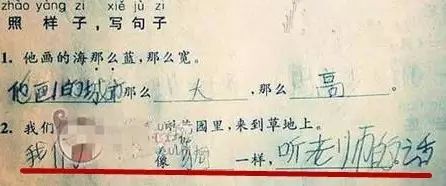 zhào yàng zi xiě jù zi
照 样 子，写 句 子
1. 他画的海那么蓝，那么宽。
他画的 那么 大 ，那么 高 。
2. 我们 园里，来到草地上。
我们 像 一样，听老师的话